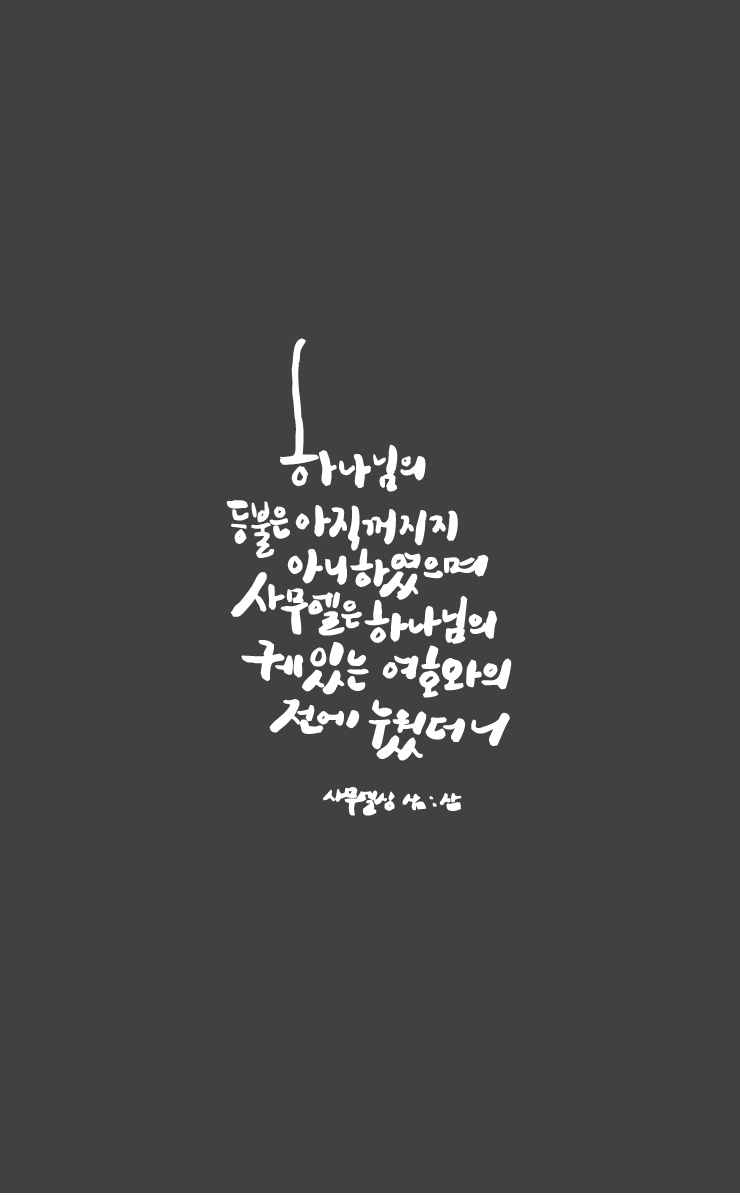 하나님의
등불은 아직 꺼지지
아니하였으며
사무엘은 하나님의
궤 있는 여호와의
전에 누웠더니
사무엘상 삼:삼